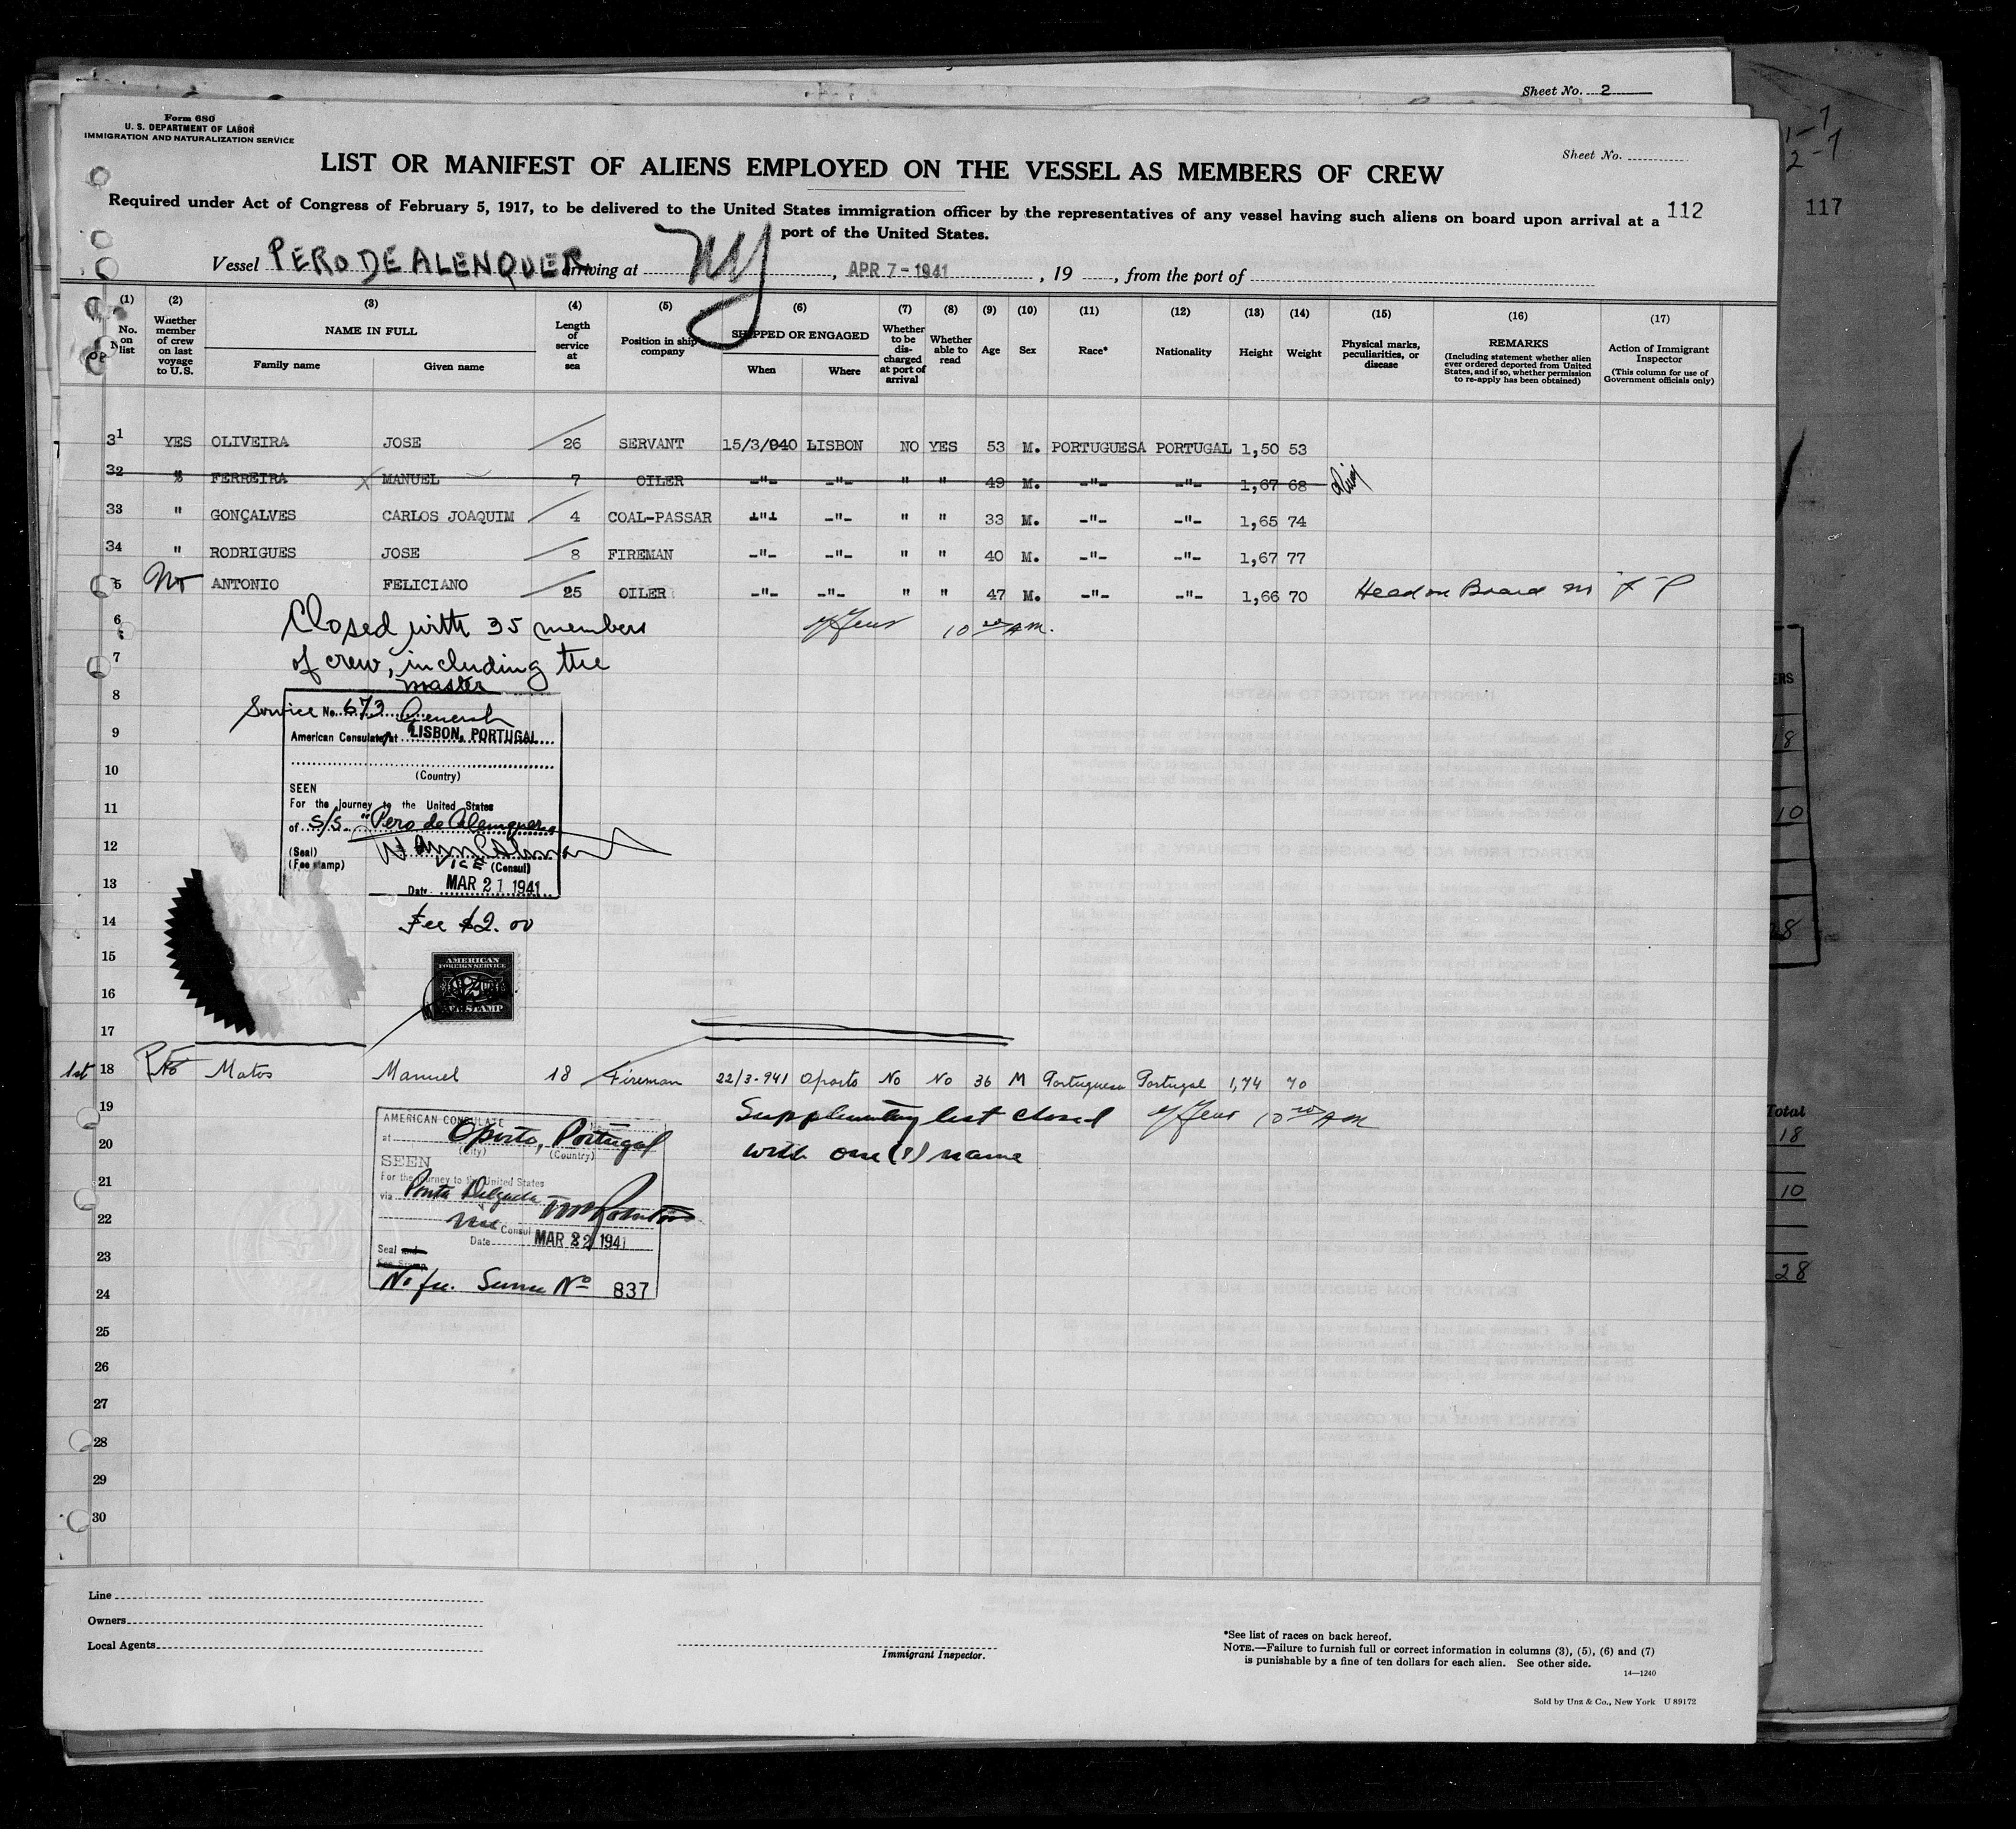 Sheet No. 2
Form 680
U. S. DEPARTMENT OF LABOR
IMMIGRATION AND NATURALIZATION SERVICE
Sheet No.
LIST OR MANIFEST OF ALIENS EMPLOYED ON THE VESSEL AS MEMBERS OF CREW
Required under Act of Congress of February 5, 1917, to be delivered to the United States immigration officer by the representatives of any vessel having such aliens on board upon arrival at a
port of the United States.
112
117
Vessel PERO DE ALENQUER arriving at NY, APR 7-1941, 19 , from the port of
(1) (2) (3) (4) (5) (6) (7) (8) (9) (10) (11) (12) (13) (14) (15) (16) (17)
No. on list
Whether member of crew on last voyage to U.S.
NAME IN FULL
Family name Given name
Length of service at sea
Position in ship company
SHIPPED OR ENGAGED
When Where
Whether to be discharged at port of arrival
Whether able to read
Age Sex Race* Nationality Height Weight
Physical marks, peculiarities, or disease
REMARKS
(Including statement whether alien ever ordered deported from United States, and if so, whether permission to re-apply has been obtained)
Action of Immigrant Inspector
(This column for use of Government officials only)
31 YES OLIVEIRA JOSE 26 SERVANT 15/3/940 LISBON NO YES 53 M. PORTUGUESA PORTUGAL 1,50 53
32 " FERREIRA MANUEL 7 OILER -"- -"- " " 49 M. -"- -"- 1,67 68
33 " GONÇALVES CARLOS JOAQUIM 4 COAL-PASSAR -"- -"- " " 33 M. -"- -"- 1,65 74
34 " RODRIGUES JOSE 8 FIREMAN -"- -"- " " 40 M. -"- -"- 1,67 77
5 No ANTONIO FELICIANO 25 OILER -"- -"- " " 47 M. -"- -"- 1,66 70 Board
6 Closed with 35 members 10 AM.
7 of crew, including the
master
8
Service No. 673 General
9 American Consulate at LISBON, PORTUGAL
10 (Country)
SEEN
11 For the journey to the United States
of S/S. "Pero de Alenquer"
12 (Seal)
(Fee stamp) VICE (Consul)
13 Date MAR 21 1941
14 Fee $2.00
15 AMERICAN
FOREIGN SERVICE
16 FEE STAMP
17
1st 18 No Matos Manuel 18 Fireman 22/3-941 Oporto No No 36 M Portuguesa Portugal 1,74 70
19 Supplementary list closed 10 AM
AMERICAN CONSULATE
20 at Oporto, Portugal with one (1) name
(City) (Country)
SEEN
21 For the journey to the United States
via Ponta Delgada
22 Vice Consul
23 Date MAR 22 1941
Seal and
Fee Stamp
24 No fee. Service No 837
25
26
27
28
29
30
Total
18
10
28
Line
Owners
Local Agents
Immigrant Inspector.
*See list of races on back hereof.
NOTE.—Failure to furnish full or correct information in columns (3), (5), (6) and (7)
is punishable by a fine of ten dollars for each alien. See other side.
14—1240
Sold by Unz & Co., New York U 89172